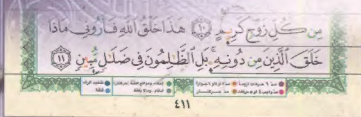 مِن كُلِّ زَوۡجٖ كَرِيمٍ ١٠ هَٰذَا خَلۡقُ ٱللَّهِ فَأَرُونِي مَاذَا
خَلَقَ ٱلَّذِينَ مِن دُونِهِۦۚ بَلِ ٱلظَّٰلِمُونَ فِي ضَلَٰلٖ مُّبِينٖ ١١
٤١١